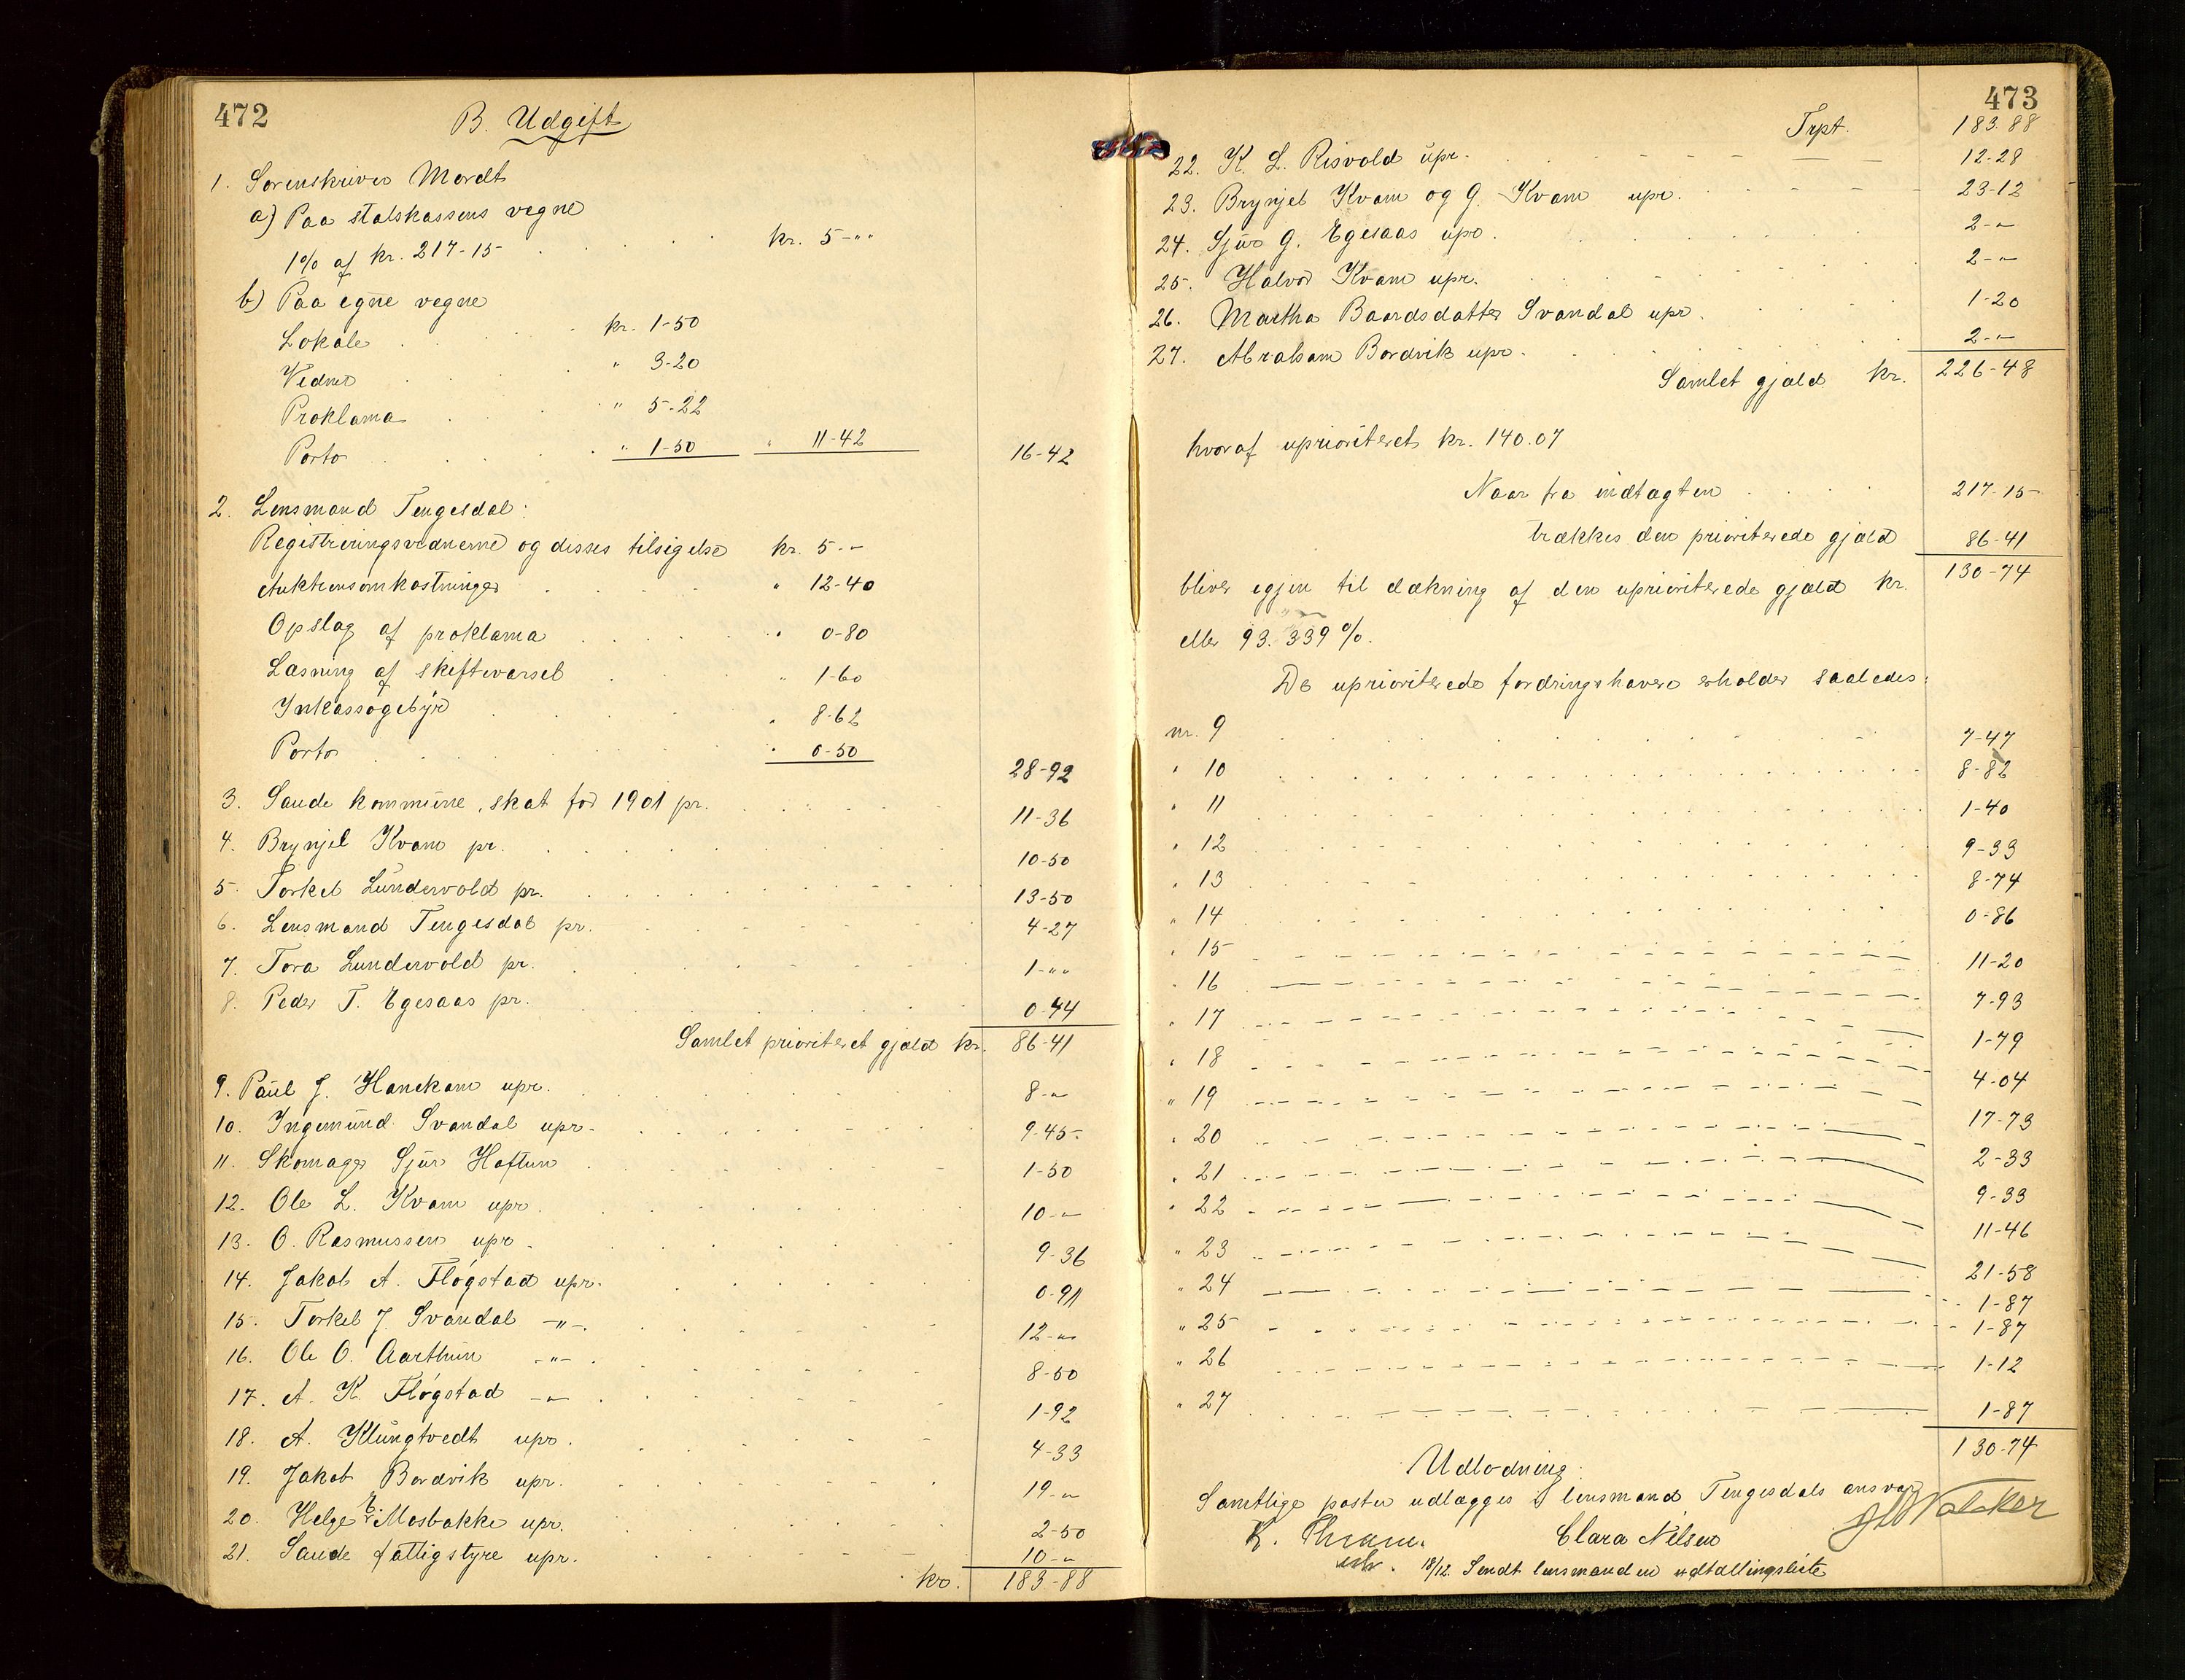 472
B. Udgift
1. Sorenskriver Mordt
a) Paa statskassens vegne
1% af kr. 217-15 kr. 5-""
b) Paa egne vegne
Lokale kr. 1-50
Vidner " 3-20
Proklama " 5-22
Porto " 1-50 " 11-42 16-42
2. Lensmand Tengesdal:
Registreringsvidnerne og disses tilsigelse kr. 5--
Auktionsomkostninger " 12-40
Opslag af proklama " 0-80
Læsning af skiftevarsel " 1-60
Inkassogebyr " 8-62
Porto " 0-50
28-92
3. Saude kommune, skat for 1901 pr. 11-36
4. Brynjel Kvam pr. 10-50
5. Torkel Lundervold pr. 13-50
6. Lensmand Tengesdal pr. 4-27
7. Tora Lundervold pr. 1-""
8. Peder T. Egesaas pr. 0-44
Samlet prioriteret gjæld kr. 86-41
9. Paul J. Hanekam upr. 8-"
10. Ingemund Svandal upr. 9-45
11. Skomager Sjur Hoftun 1-50
12. Ole L. Kvam upr. 10-"
13. O. Rasmussen upr. 9-36
14. Jakob A. Fløgstad upr. 0-91
15. Torkel J. Svandal -"- 12-"
16. Ole O. Aarthun -"- 8-50
17. A. K. Fløgstad -"- 1-92
18. A. Klungtvedt upr. 4-33
19. Jakob Bordvik upr. 19-"
20. Helge Mosbakke upr. 2-50
21. Saude fattigstyre upr. 10-"
kr. 183-88
473
Trpt. 183.88
22. K. L. Risvold upr. 12-28
23. Brynjel Kvam og G. Kvam upr. 23-12
24. Sjur G. Egesaas upr. 2-"
25. Halvor Kvam upr. 2-"
26. Martha Baardsdatter Svandal upr. 1-20
27. Abraham Bordvik upr. 2-"
Samlet gjæld kr. 226-48
hvoraf uprioriteret kr. 140.07
Naar fra indtægten 217-15
trækkes den prioriterede gjæld 86-41
bliver egjen til dækning af den uprioriterede gjæld kr. 130-74
eller 93.339%.
De uprioriterede fordringshavere erholder saaledes:
nr. 9 7-47
" 10 8-82
" 11 1-40
" 12 9-33
" 13 8-74
" 14 0-86
" 15 11-20
" 16 7-93
" 17 1-79
" 18 4-04
" 19 17-73
" 20 2-33
" 21 9-33
" 22 11-46
" 23 21-58
" 24 1-87
" 25 1-87
" 26 1-12
" 27 1-87
130-74
Udlodning:
Samtlige poster udlægges i lensmand Tengesdals ansvar
Clara Nilsen
18/12. Sendt lensmanden udtællingsliste